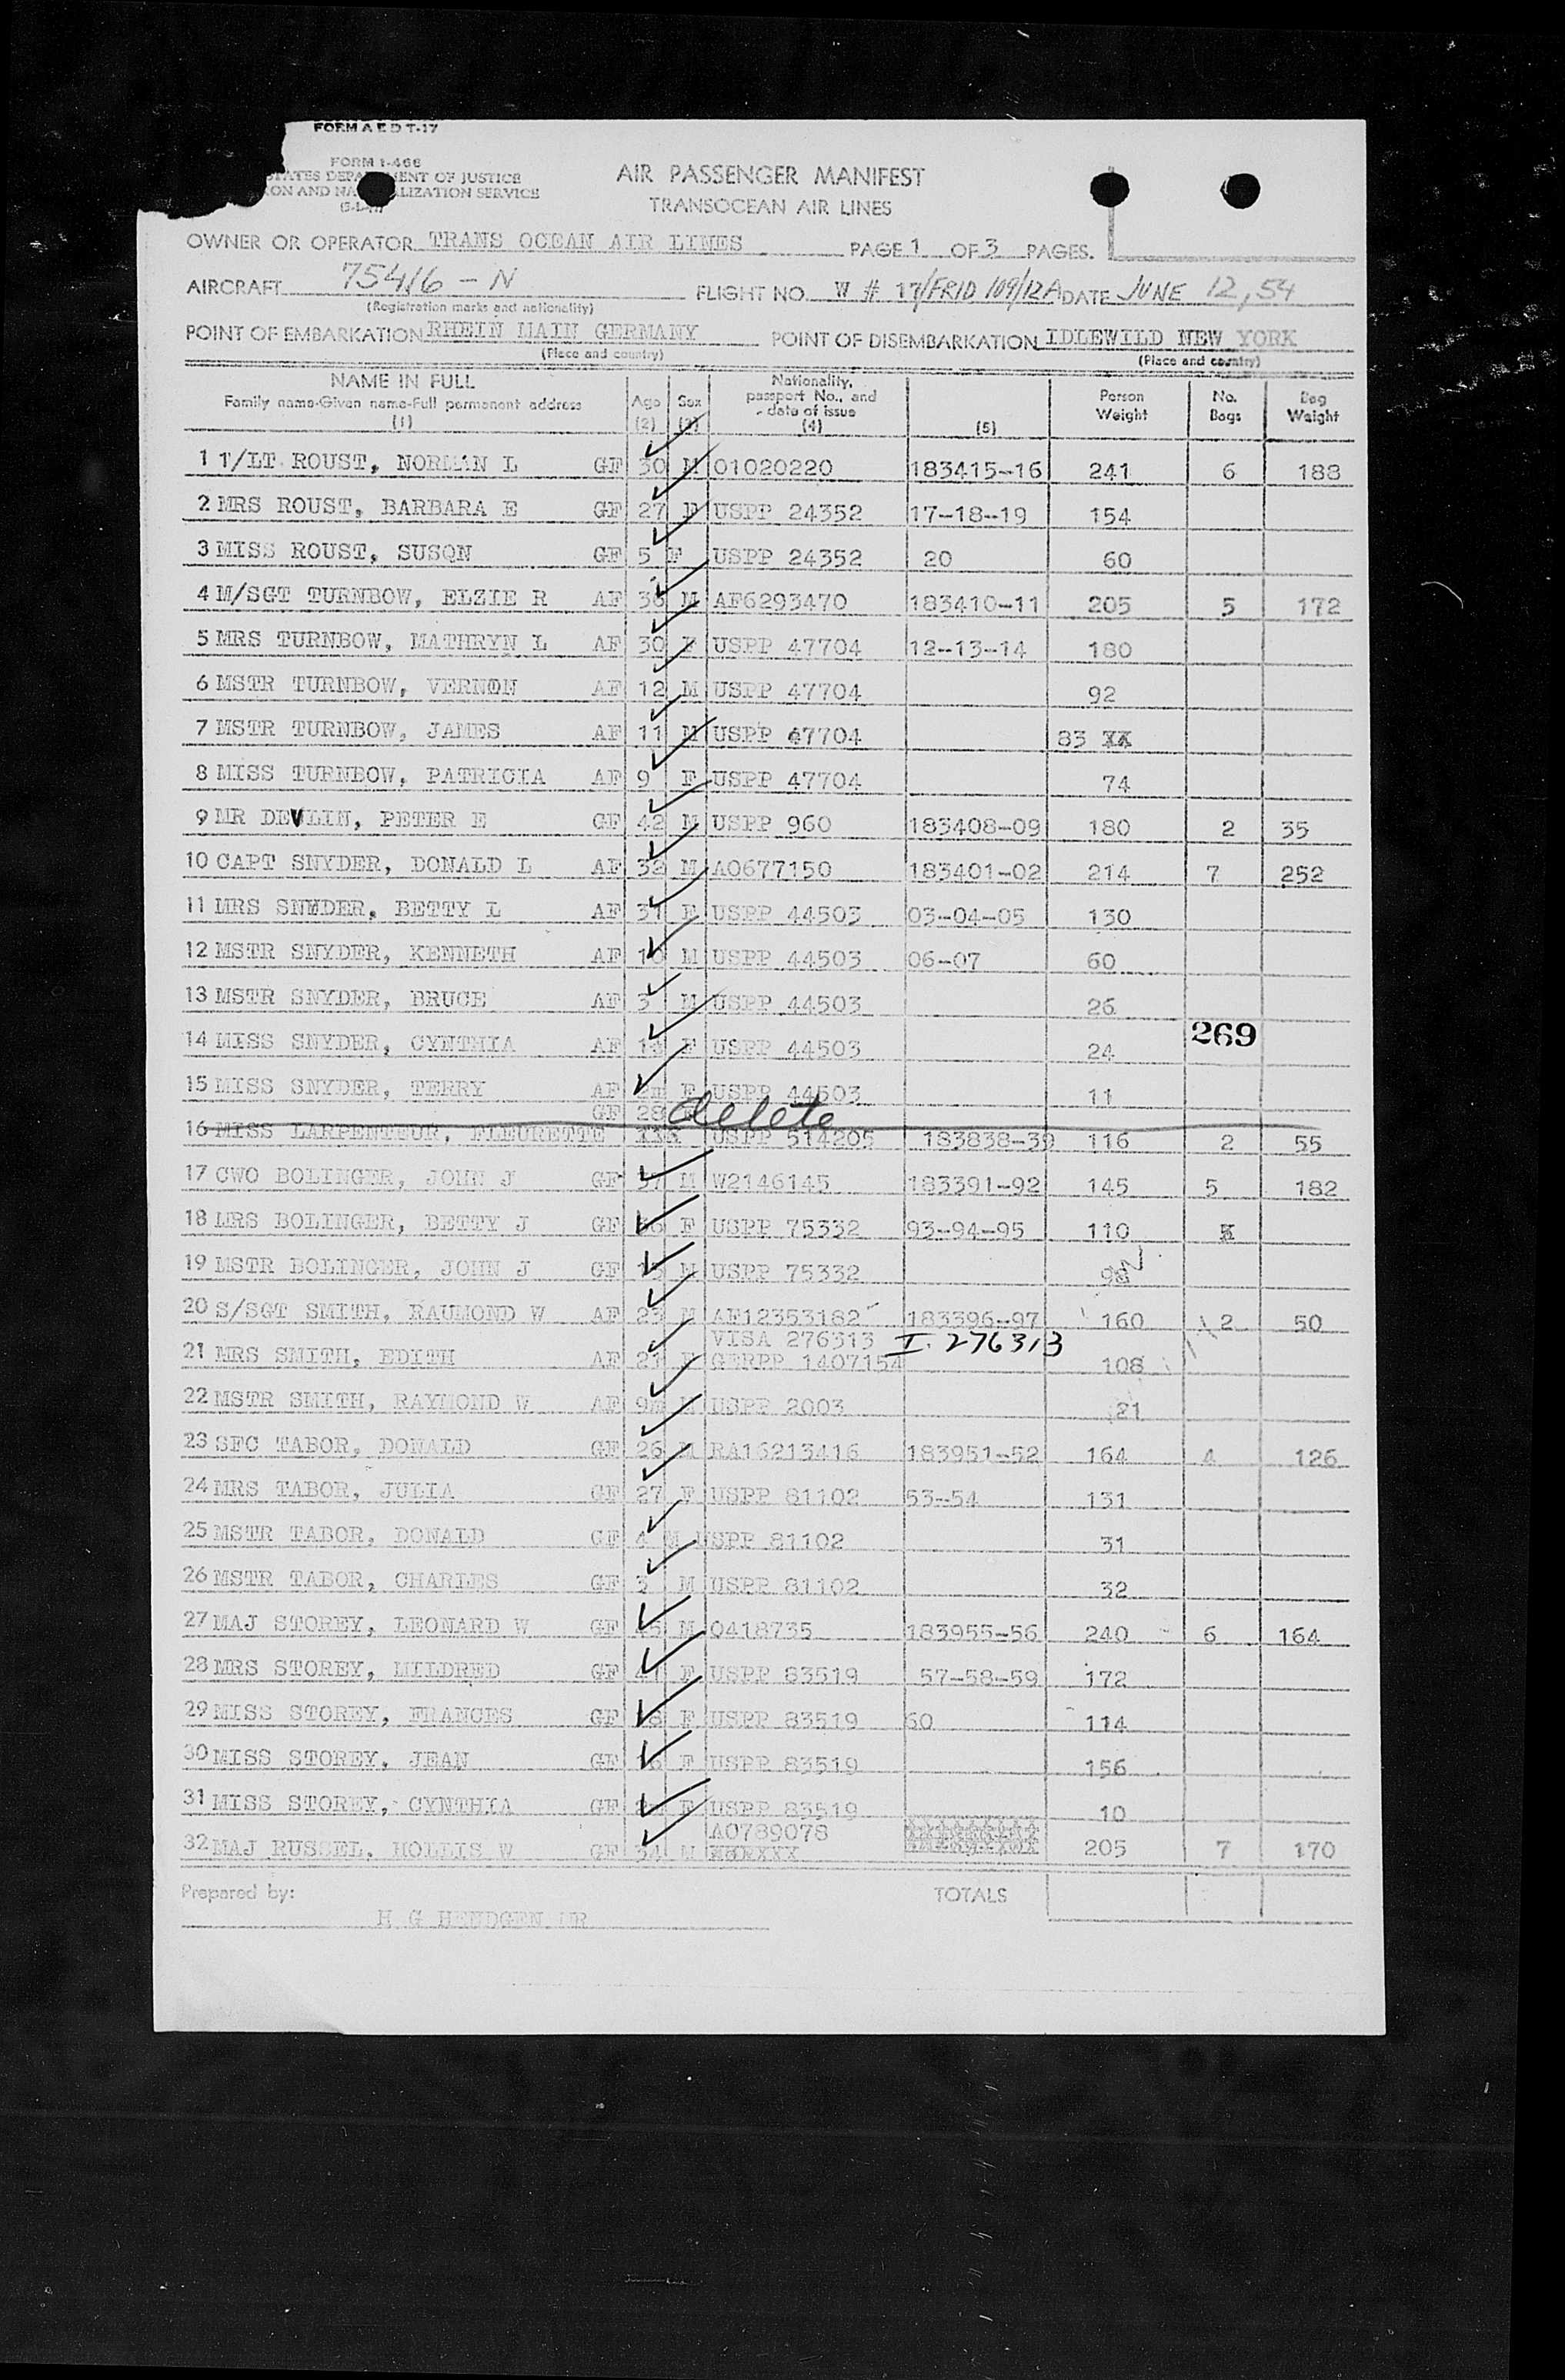 FORM A E D T-17
FORM I-466
STATES DEPARTMENT OF JUSTICE
ION AND NATURALIZATION SERVICE
AIR PASSENGER MANIFEST
TRANSOCEAN AIR LINES
OWNER OR OPERATOR TRANS OCEAN AIR LINES PAGE 1 OF 3 PAGES.
AIRCRAFT 75416 - N FLIGHT NO. W # 17/FRID 109/12A DATE JUNE 12, 54
(Registration marks and nationality)
POINT OF EMBARKATION RHEIN MAIN GERMANY POINT OF DISEMBARKATION IDLEWILD NEW YORK
(Place and country) (Place and country)
NAME IN FULL Age Sex Nationality, passport No., and date of issue Person Weight No. Bags Bag Weight
Family name-Given name-Full permanent address
(1) (2) (3) (4) (5)
1 1/LT ROUST, NORMAN L GF 30 M 01020220 183415-16 241 6 188
2 MRS ROUST, BARBARA E GF 27 F USPP 24352 17-18-19 154
3 MISS ROUST, SUSQN GF 5 F USPP 24352 20 60
4 M/SGT TURNBOW, ELZIE R AF 36 M AF6293470 183410-11 205 5 172
5 MRS TURNBOW, MATHRYN L AF 30 F USPP 47704 12-13-14 180
6 MSTR TURNBOW, VERNON AF 12 M USPP 47704 92
7 MSTR TURNBOW, JAMES AF 11 M USPP 47704 83 XX
8 MISS TURNBOW, PATRICIA AF 9 F USPP 47704 74
9 MR DEVLIN, PETER E GF 42 M USPP 960 183408-09 180 2 35
10 CAPT SNYDER, DONALD L AF 32 M AO677150 183401-02 214 7 252
11 MRS SNYDER, BETTY L AF 31 F USPP 44503 03-04-05 130
12 MSTR SNYDER, KENNETH AF 10 M USPP 44503 06-07 60
13 MSTR SNYDER, BRUCE AF 3 M USPP 44503 26
269
14 MISS SNYDER, CYNTHIA AF F USPP 44503 24
15 MISS SNYDER, TERRY AF F USPP 44503 11
GF 28 F delete
16 MISS LARPENTEUR, FLEURETTE USPP 514205 183838-39 116 2 55
17 CWO BOLINGER, JOHN J GF 37 M W2146145 183391-92 145 5 182
18 MRS BOLINGER, BETTY J GF 36 F USPP 75332 93-94-95 110
19 MSTR BOLINGER, JOHN J GF 15 M USPP 75332
20 S/SGT SMITH, RAUMOND W AF 23 M AF12353182 183396-97 160 2 50
VISA 276313 I. 276313
21 MRS SMITH, EDITH AF 21 F GERPP 1407154 108
22 MSTR SMITH, RAYMOND W AF 9m M USPP 2003 21
23 SFC TABOR, DONALD GF 26 M RA16213416 183951-52 164 4 126
24 MRS TABOR, JULIA GF 27 F USPP 81102 53-54 131
25 MSTR TABOR, DONALD GF 4 M USPP 81102 31
26 MSTR TABOR, CHARLES GF 3 M USPP 81102 32
27 MAJ STOREY, LEONARD W GF 45 M 0418735 183955-56 240 6 164
28 MRS STOREY, MILDRED GF 41 F USPP 83519 57-58-59 172
29 MISS STOREY, FRANCES GF 18 F USPP 83519 60 114
30 MISS STOREY, JEAN GF 16 F USPP 83519 156
31 MISS STOREY, CYNTHIA GF F USPP 83519 10
AO789078
32 MAJ RUSSEL, HOLLIS W GF 34 M 205 7 170
Prepared by: TOTALS
H G HENDGEN MR